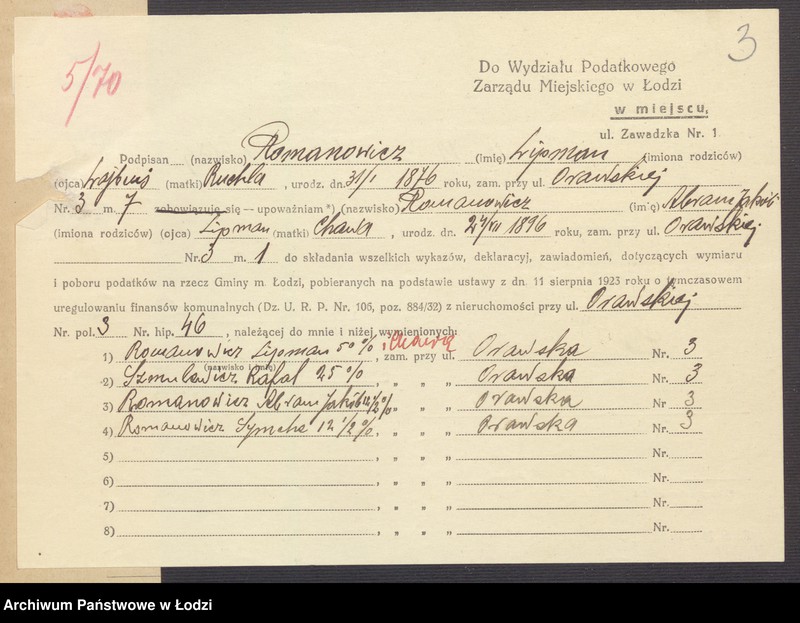 3
5/70
Do Wydziału Podatkowego
Zarządu Miejskiego w Łodzi
w miejscu,
ul. Zawadzka Nr. 1
Podpisan (nazwisko) Romanowicz (imię) Lipman (imiona rodziców)
(ojca) Lajbuś (matki) Ruchla, urodz. dn. 31/I 1876 roku, zam. przy ul. Orawskiej
Nr. 3 m. 7 zobowiązuję się – upoważniam *) (nazwisko) Romanowicz (imię) Abram Jakób
(imiona rodziców) (ojca) Lipman (matki) Chawa, urodz. dn. 27/VII 1896 roku, zam. przy ul. Orawskiej
Nr. 3 m. 1 do składania wszelkich wykazów, deklaracyj, zawiadomień, dotyczących wymiaru
i poboru podatków na rzecz Gminy m. Łodzi, pobieranych na podstawie ustawy z dn. 11 sierpnia 1923 roku o tymczasowem
uregulowaniu finansów komunalnych (Dz. U. R. P. Nr. 106, poz. 884/32) z nieruchomości przy ul. Orawskiej
Nr. pol. 3 Nr. hip. 46, należącej do mnie i niżej wymienionych:
1) Romanowicz Lipman 50 %, i Chawa zam. przy ul. Orawska Nr. 3
(nazwisko i imię)
2) Szmulewicz Rafał 25 % „ „ „ Orawska Nr. 3
3) Romanowicz Abram Jakób 12 1/2 % „ „ „ Orawska Nr 3
4) Romanowicz Symcha 12 1/2 %, „ „ „ Orawska Nr. 3
5) , „ „ „ Nr.
6) , „ „ „ Nr.
7) , „ „ „ Nr.
8) , „ „ „ Nr.
Archiwum Państwowe w Łodzi